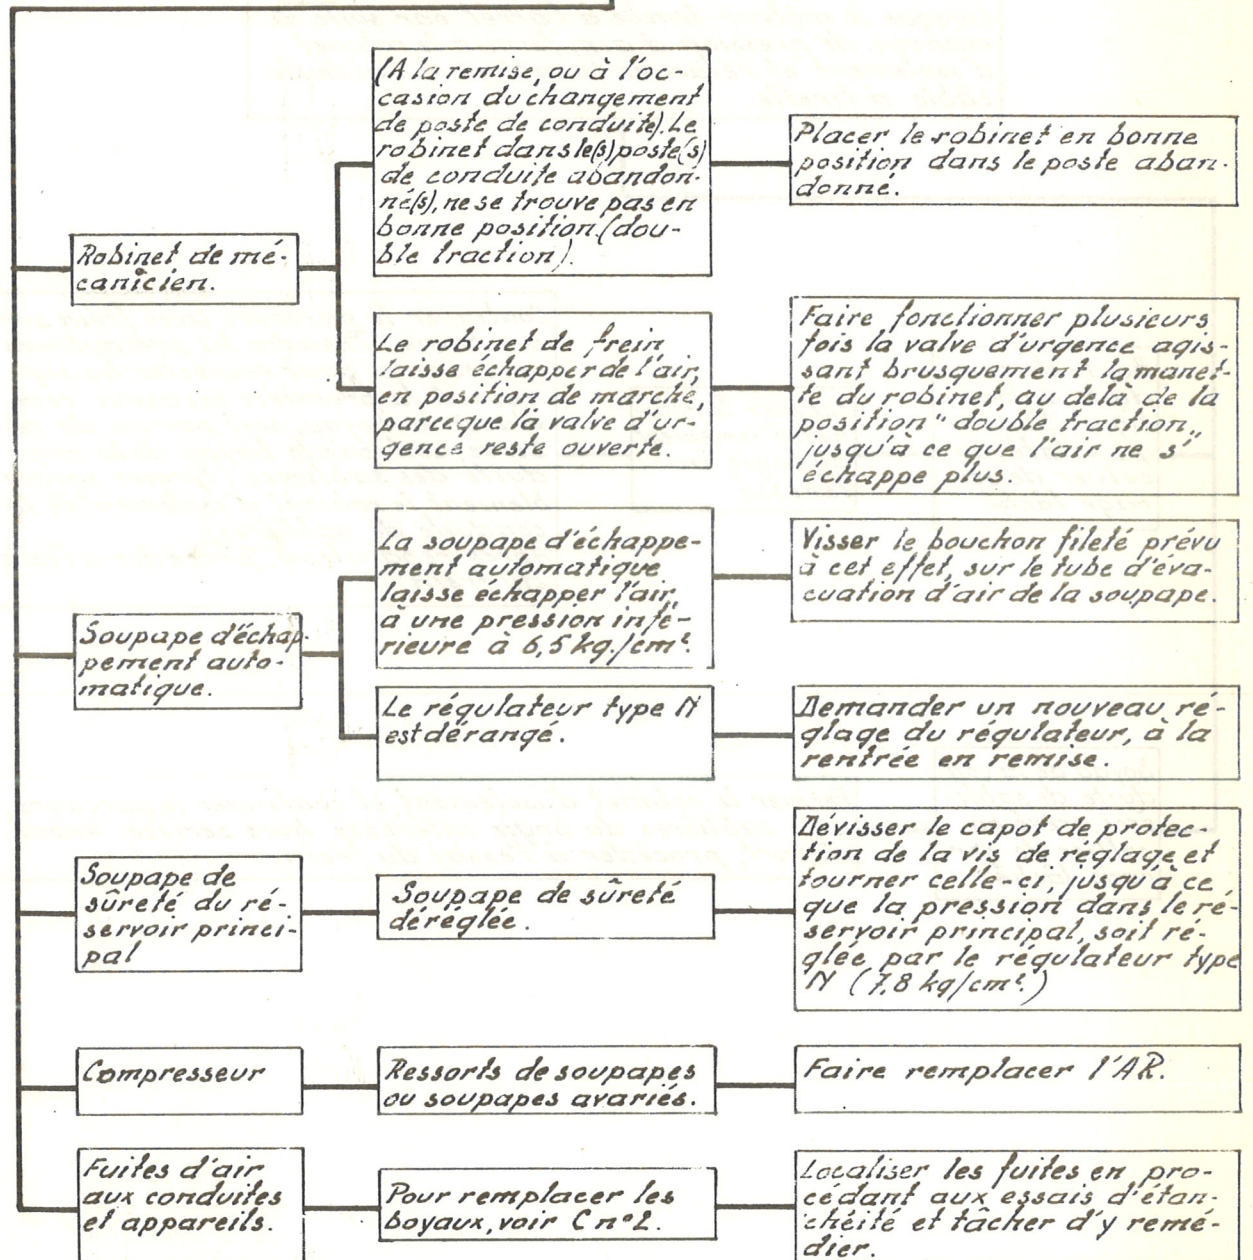 (A la remise, ou à l'oc-
casion du changement
de poste de conduite). Le
robinet dans le(s) poste(s)
de conduite abandon-
né(s), ne se trouve pas en
bonne position. (dou-
ble traction).
Placer le robinet en bonne
position dans le poste aban-
donné.
Robinet de mé-
canicien.
Le robinet de frein
laisse échapper de l'air,
en position de marche,
parceque la valve d'ur-
gence reste ouverte.
Faire fonctionner plusieurs
fois la valve d'urgence agis-
sant brusquement la manet-
te du robinet, au delà de la
position "double traction„
jusqu'à ce que l'air ne s'
échappe plus.
La soupape d'échappe-
ment automatique
laisse échapper l'air,
à une pression infé-
rieure à 6,5 kg./cm².
Visser le bouchon fileté prévu
à cet effet, sur le tube d'éva-
cuation d'air de la soupape.
Soupape d'échap-
pement auto-
matique.
Le régulateur type N
est dérangé.
Demander un nouveau ré-
glage du régulateur, à la
rentrée en remise.
Soupape de
sûreté du ré-
servoir princi-
pal
Soupape de sûreté
déréglée.
Dévisser le capot de protec-
tion de la vis de réglage et
tourner celle-ci, jusqu'à ce
que la pression dans le ré-
servoir principal, soit ré-
glée par le régulateur type
N (7,8 kg/cm².)
Compresseur
Ressorts de soupapes
ou soupapes avariés.
Faire remplacer l'AR.
Fuites d'air
aux conduites
et appareils.
Pour remplacer les
boyaux, voir C n° 2.
Localiser les fuites en pro-
cédant aux essais d'étan-
chéité et tâcher d'y remé-
dier.